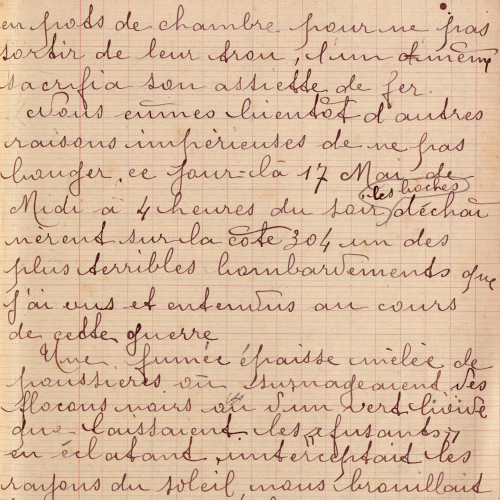 en pots de chambre pour ne pas
sortir de leur trou, l'un même
sacrifia son assiette de fer.
Nous eûmes bientôt d'autres
raisons impérieuses de ne pas
bouger, ce jour-là 17 Mai de
les boches
Midi à 4 heures du soir déchaî
nèrent sur la côte 304 un des
plus terribles bombardements que
j'ai vus et entendus au cours
de cette guerre
Une fumée épaisse mêlée de
poussières où surnageaient des
flocons noirs ou d'un vert livide
que laissaient les "fusants"
en éclatant, interceptait les
rayons du soleil, nous brouillait